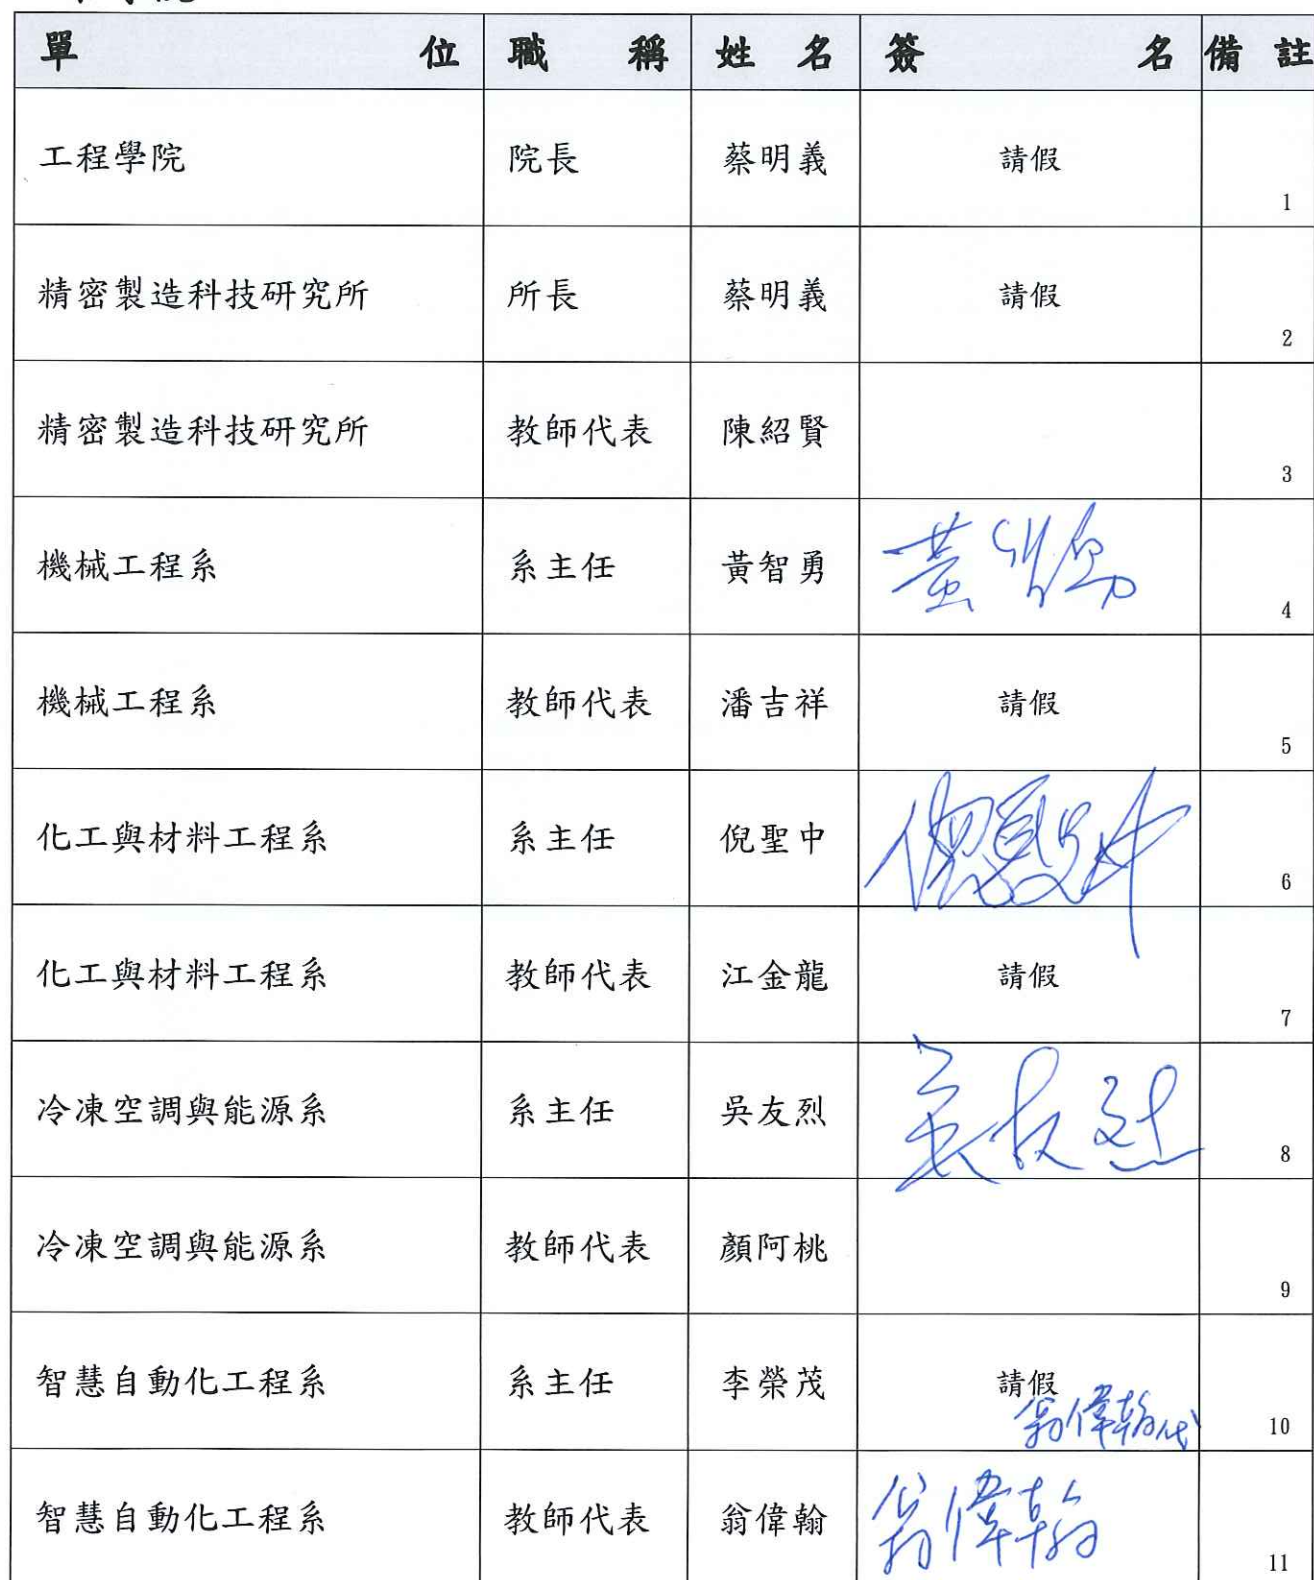 單位 職稱 姓名 簽名 備註
工程學院 院長 蔡明義 請假 1
精密製造科技研究所 所長 蔡明義 請假 2
精密製造科技研究所 教師代表 陳紹賢 3
機械工程系 系主任 黃智勇 黃智勇 4
機械工程系 教師代表 潘吉祥 請假 5
化工與材料工程系 系主任 倪聖中 倪聖中 6
化工與材料工程系 教師代表 江金龍 請假 7
冷凍空調與能源系 系主任 吳友烈 吳友烈 8
冷凍空調與能源系 教師代表 顏阿桃 9
智慧自動化工程系 系主任 李榮茂 請假 翁偉翰代 10
智慧自動化工程系 教師代表 翁偉翰 翁偉翰 11